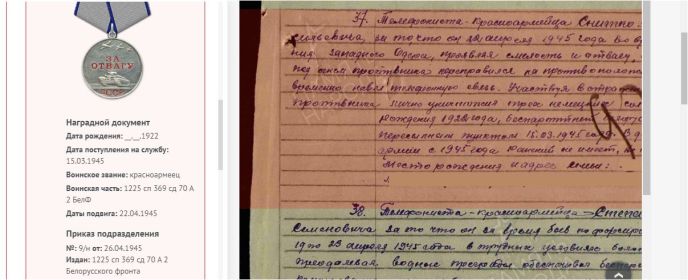 ЗА
ОТВАГУ
СССР
Наградной документ
Дата рождения: __.__.1922
Дата поступления на службу:
15.03.1945
Воинское звание: красноармеец
Воинская часть: 1225 сп 369 сд 70 А
2 БелФ
Даты подвига: 22.04.1945
Приказ подразделения
№: 9/н от: 26.04.1945
Издан: 1225 сп 369 сд 70 А 2
Белорусского фронта
37. Телефониста - красноармейца
за то что он 22 апреля 1945 года во
ния Западного Одера, проявляя смелость и отвагу,
под огнем противника переправился на
временно навел телефонную связь. Участвуя в
противника лично уничтожил трех немецких
рождения 1922 года, беспартийный
пересыльным пунктом 15.03.1945 года. В
армии с 1945 года ранений не имеет,
Место рождения и адрес семьи:
38. Телефониста - красноармейца
Семеновича за то что он за время боев по
19 по 23 апреля 1945 года в трудных условиях
преодолевая водные преграды обеспечивал